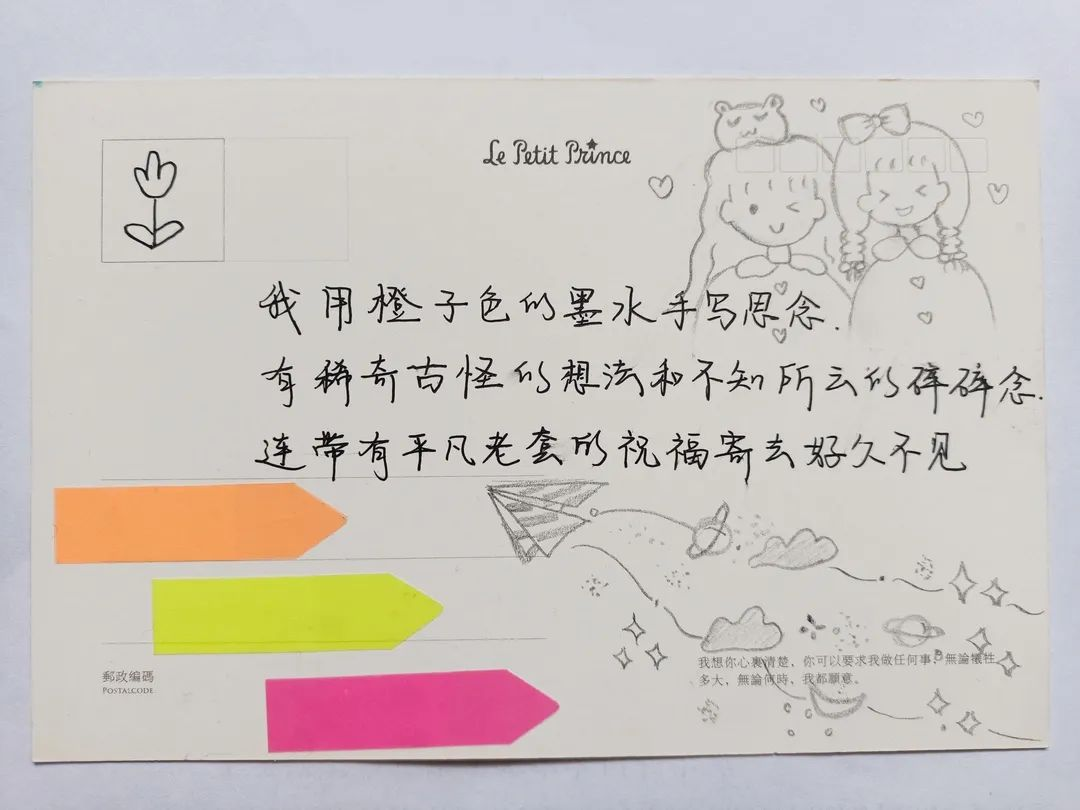 Le Petit Prince
我用橙子色的墨水手写思念.
有稀奇古怪的想法和不知所云的碎碎念.
连带有平凡老套的祝福寄去好久不见
郵政編碼
POSTALCODE
我想你心裏清楚，你可以要求我做任何事，無論犧牲
多大，無論何時，我都願意。